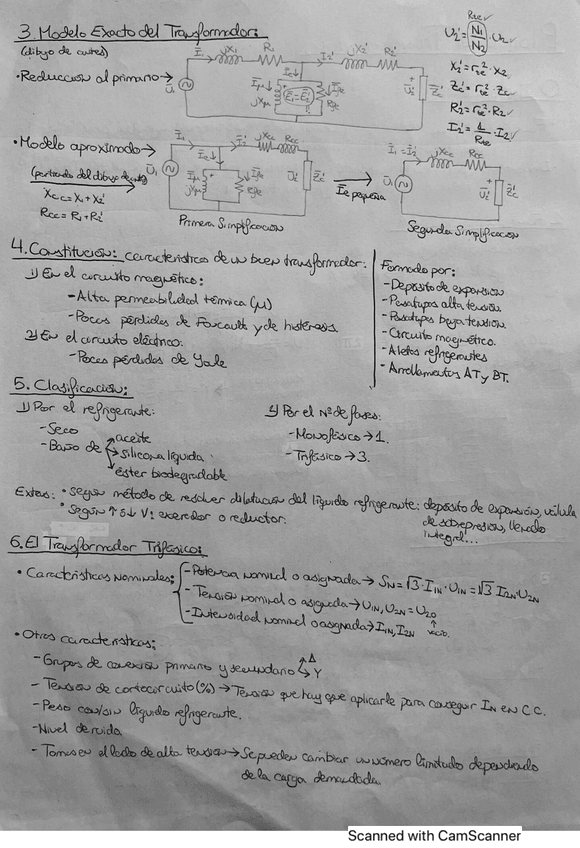 3. Modelo Exacto del Transformador:
(dibujo de antes)
• Reducción al primario →
Ī₁ jX₁ R₁ Ī₂' jX₂' R₂'
Ū₁ Īe Īμ jXμ Ē₁=Ē₂' Īfe Rfe Ū₂' Z̄c'
Rte
U₂' = (N₁/N₂) · U₂
X₂' = rte² · X₂
Zc' = rte² · Zc
R₂' = rte² · R₂
I₂' = 1/Rte · I₂
• Modelo aproximado →
(partiendo del dibujo de antes)
Xcc = X₁ + X₂'
Rcc = R₁ + R₂'
Ī₁ Ī₂' jXcc Rcc
Ū₁ Īe Īμ jXμ Īfe Rfe Ū₂' Z̄c'
Primera Simplificación
Īe pequeña
Ī₁ = Ī₂' jXcc Rcc
Ū₁ Ū₂' Z̄c'
Segunda Simplificación
4. Constitución: características de un buen transformador:
1) En el circuito magnético:
- Alta permeabilidad térmica (μ)
- Pocas pérdidas de Foucault y de histéresis
2) En el circuito eléctrico:
- Pocas pérdidas de Joule
Formado por:
- Depósito de expansión
- Pasatapas alta tensión
- Pasatapas baja tensión
- Circuito magnético
- Aletas refrigerantes
- Arrollamientos AT y BT.
5. Clasificación:
1) Por el refrigerante:
- Seco
- Baño de → aceite
→ silicona líquida
→ éster biodegradable
2) Por el Nº de fases:
- Monofásico → 1.
- Trifásico → 3.
Extras: • Según método de resolver dilatación del líquido refrigerante: depósito de expansión, válvula
de sobrepresión, llenado
integral...
• Según ↑ ó ↓ V: elevador o reductor.
6. El Transformador Trifásico:
• Características Nominales:
- Potencia nominal o asignada → SN = √3 · I1N · U1N = √3 I2N U2N
- Tensión nominal o asignada → U1N, U2N = U20
- Intensidad nominal o asignada → I1N, I2N
vacío.
• Otras características:
- Grupos de conexión primario y secundario → Δ
→ Y
- Tensión de cortocircuito (%) → Tensión que hay que aplicarle para conseguir IN en C.C.
- Peso con/sin líquido refrigerante.
- Nivel de ruido.
- Tomas en el lado de alta tensión → Se pueden cambiar un número limitado dependiendo
de la carga demandada.
Scanned with CamScanner